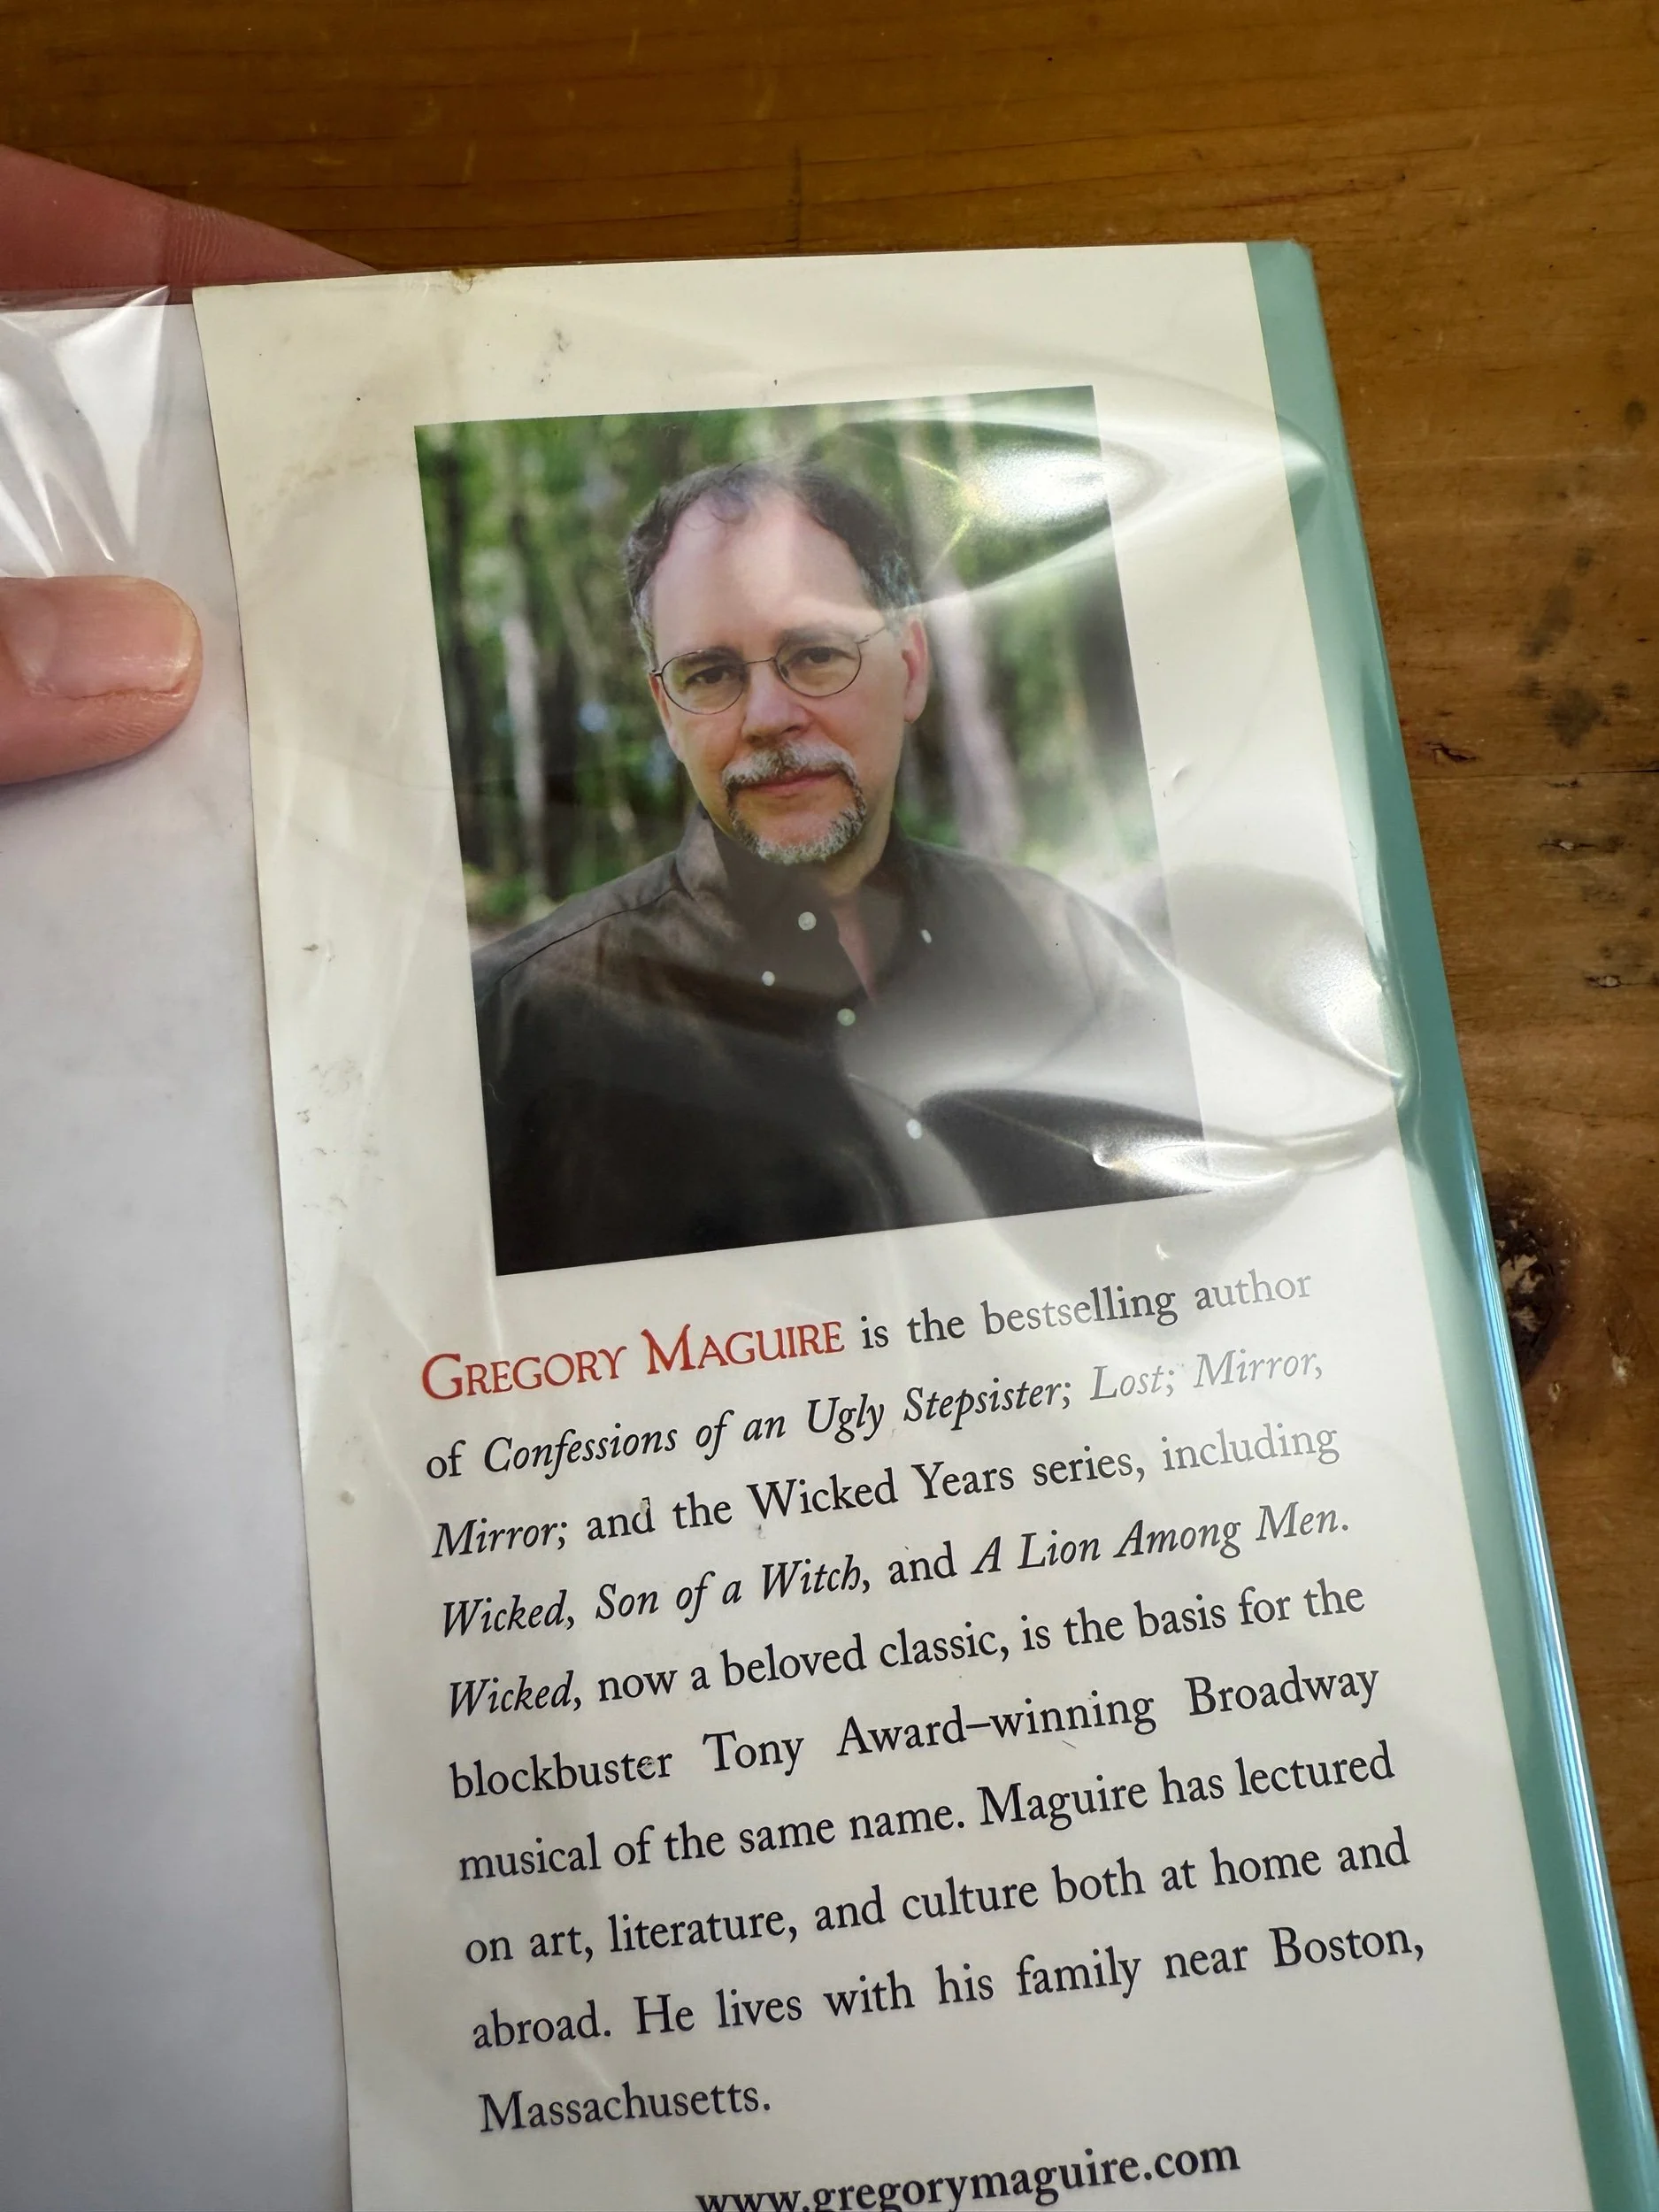 GREGORY MAGUIRE is the bestselling author
of Confessions of an Ugly Stepsister; Lost; Mirror,
Mirror; and the Wicked Years series, including
Wicked, Son of a Witch, and A Lion Among Men.
Wicked, now a beloved classic, is the basis for the
blockbuster Tony Award–winning Broadway
musical of the same name. Maguire has lectured
on art, literature, and culture both at home and
abroad. He lives with his family near Boston,
Massachusetts.
www.gregorymaguire.com